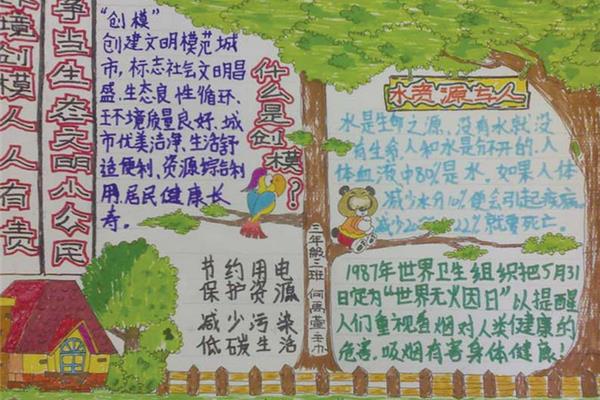 环境创模人人有责
争当生态文明小公民
“创模”
创建文明模范城
市,标志社会文明昌
盛、生态良性循环、
王环境质量良好、城
市优美洁净、生活舒
适便利、资源综合利
用、居民健康长
寿。
什么是创模?
节约用电
保护资源
减少污染
低碳生活
三年级三班 何禹萱
水资源与人
水是生命之源,没有水就没
有生命,人和水是分不开的,人
体血液中80%是水,如果人体
减少水分10%便会引起疾病,
减少20~22%就要死亡。
1987年世界卫生组织把5月31
日定为“世界无烟日”以提醒
人们重视香烟对人类健康的
危害,吸烟有害身体健康!